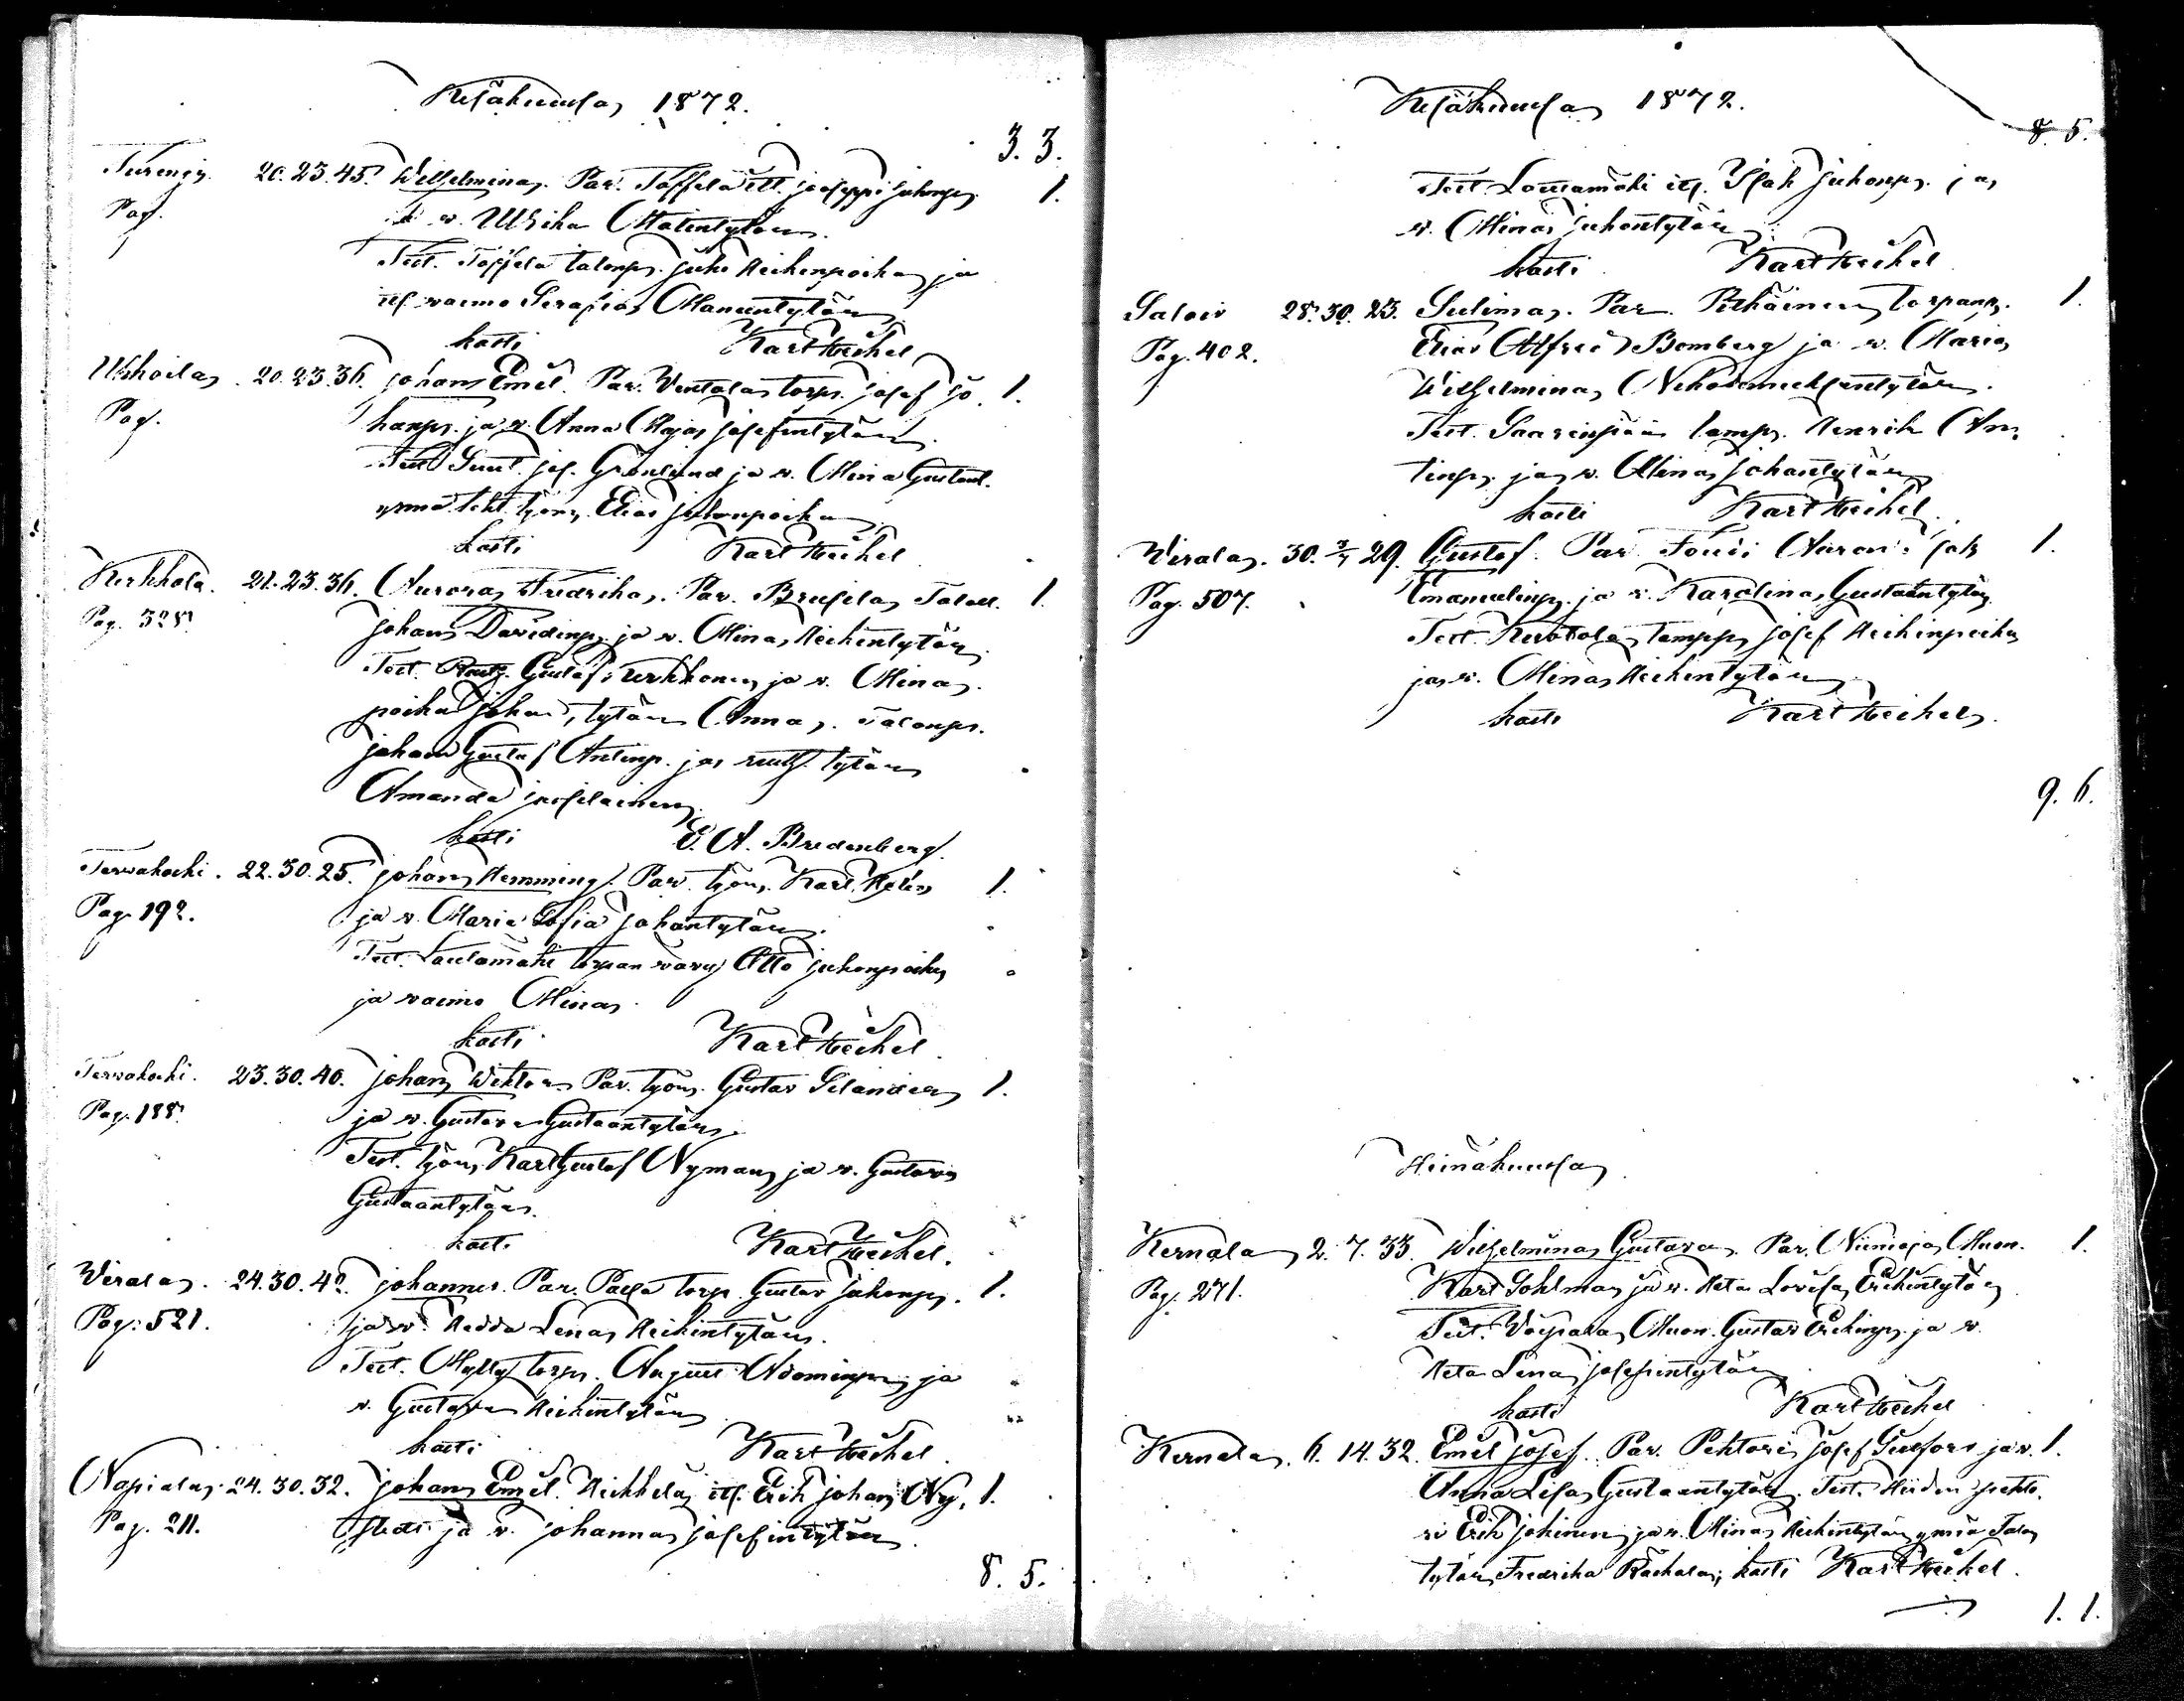 Kesäkuussa 1872.
3. 3.
Turengi. 20. 23. 45. Wilhelmina. Par. Toffela itl. Joseppi Juhonp. 1.
Pag. ja v. Ulrika Matintytär.
Test. Toffela talonp. Juho Heikinpoika ja
itl. vaimo Serafia Manuntytär
kasti Karl Heikel
Uhkoila. 20. 23. 36. Johan Emil. Par. Ventola torp. Josef Jo- 1.
Pag. hanp. ja v. Anna Maja Josefintytär.
Test. Suut. Jos. Grönlund ja v. Mina Gustaut.
ynnä teht. työm. Elias Juhonpoika
kasti Karl Heikel
Kerkkola. 21. 23. 36. Aurora Fredrika. Par. Brusila Talol. 1.
Pag. 328. Johan Davidinp. ja v. Mina Heikintytär
Test. Gustaf Urkkonen ja v. Mina.
poika Johan, tytär Anna. Talonp.
Johan Gustaf Antinp. ja tytär
Amanda
kasti E. A. Bredenberg.
Tervakoski. 22. 30. 25. Johan Hemming. Par. työm. Karl Helin 1.
Pag. 192. ja v. Maria Sofia Johantytär.
Test. Laulamäki torpan vävy Otto Juhonpoika
ja vaimo Mina
kasti Karl Heikel
Tervakoski. 23. 30. 40. Johan Wiktor. Par. työm. Gustav Selander 1.
Pag. 188. ja v. Gustava Gustaantytär.
Test. työm. Karl Gustaf Nyman ja v. Gustava
Gustaantytär.
kasti Karl Heikel.
Wirala. 24. 30. 42. Johannes. Par. Torp. Gustav Juhonp. 1.
Pag. 521. ja v. Hedda Lena Heikintytär.
Test. Mylly torp. August Adaminp. ja
v. Gustava Heikintytär
kasti Karl Heikel
Napiala. 24. 30. 32. Johan Emil. Heikkelä itl. Erik Johan Ny- 1.
Pag. 211. stedt ja v. Johanna Josefintytär
8. 5.
Kesäkuussa 1872.
8. 5.
Test. Lounamäki itl. Isak Juhonp. ja
v. Mina Juhontytär
kasti Karl Heikel
Saloin 28. 30. 23. Selima. Par. Pitkäinen torpanp. 1.
Pag. 402. Elias Alfred Bomberg ja v. Maria
Wilhelmina
Test. Saarenpään lamp. Henrik An-
tinp. ja v. Mina Johantytär
kasti Karl Heikel
Wirala. 30. 3/7 29. Gustaf. Par. Aaron 1.
Pag. 507. Emanuelinp. ja v. Karolina Gustaantytär
Test. Kerotola lampp. Josef Heikinpoika
ja v. Mina Heikintytär
kasti Karl Heikel.
9. 6.
Heinäkuussa
Kernala 2. 7. 33. Wilhelmina Gustava. Par. Niinioja Muon. 1.
Pag. 271. Karl Sohlman ja v. Heta Lovisa Erikintytär
Test. Muon. Gustav Erikinp. ja v.
Heta Lena Josefintytär
kasti Karl Heikel
Kernala. 6. 14. 32. Emil Josef. Par. Pehtori Josef Sulfors ja v. 1.
Anna Lisa Gustaantytär. Test. pehto-
ri Erik Johinen ja v. Mina Heikintytär ynnä Talon
tytär Fredrika kasti Karl Heikel.
1. 1.